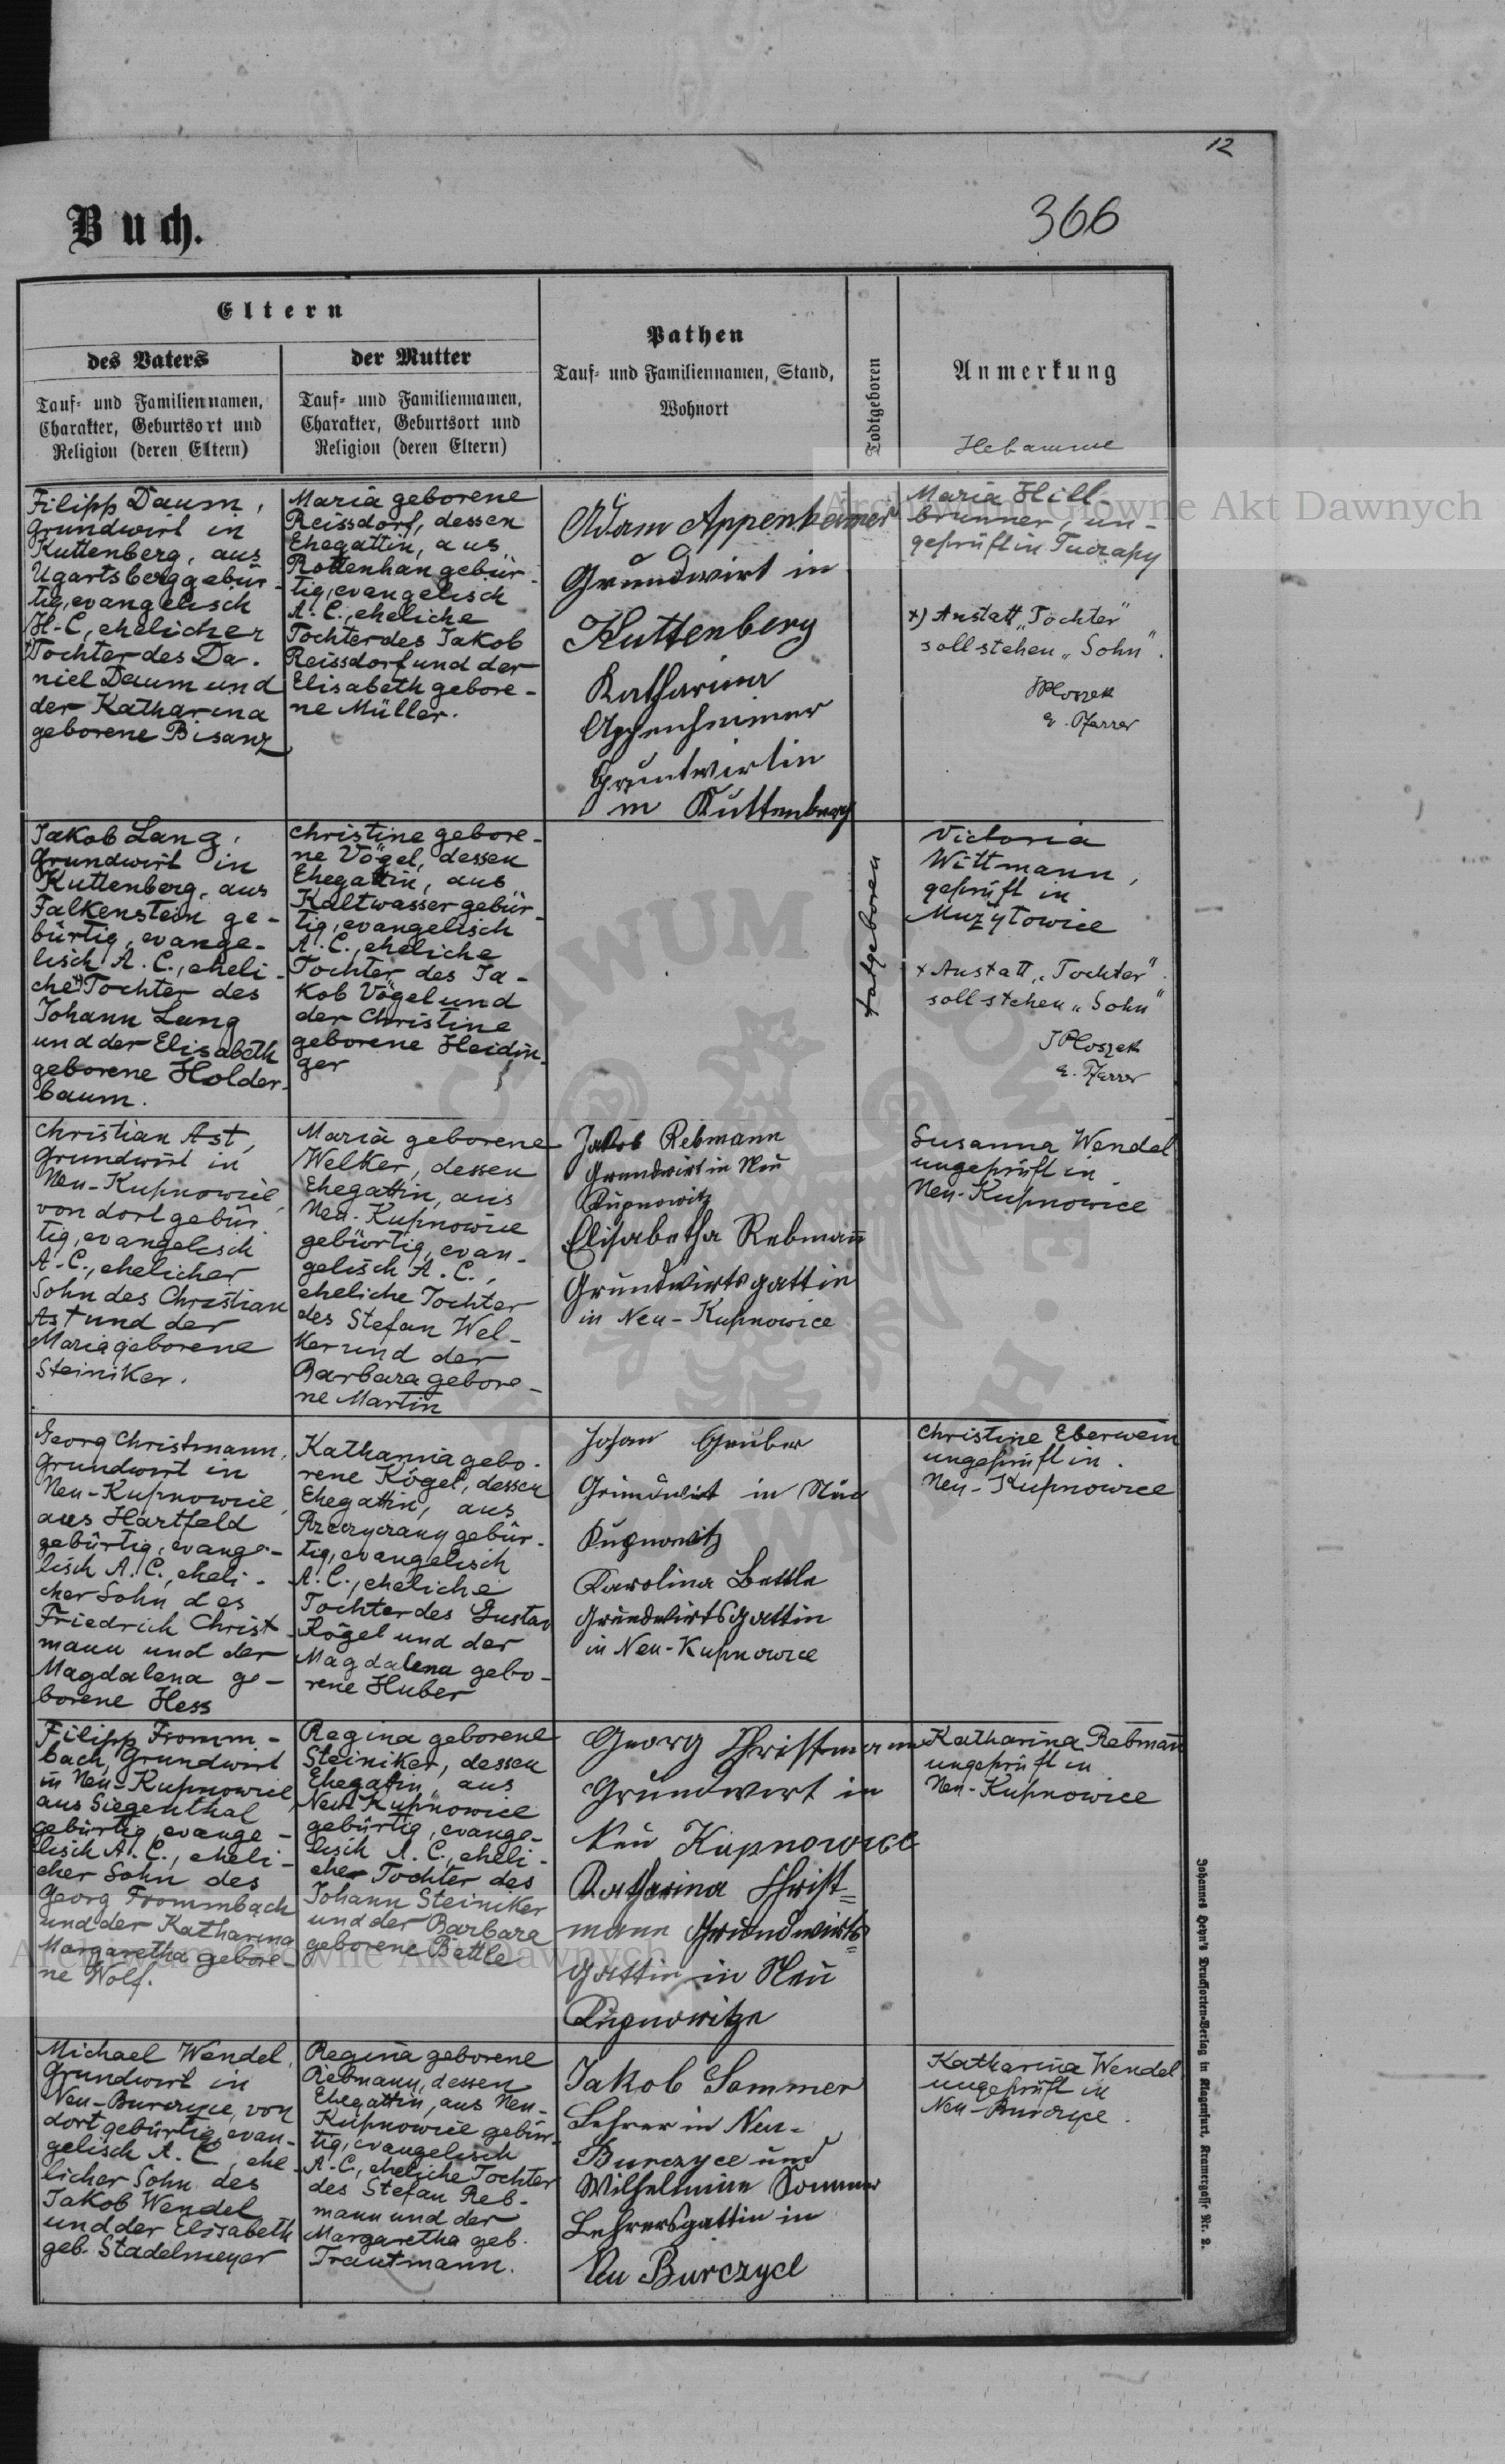 12
366
Buch.
Eltern
des Vaters
Tauf- und Familiennamen,
Charakter, Geburtsort und
Religion (deren Eltern)
der Mutter
Tauf- und Familiennamen,
Charakter, Geburtsort und
Religion (deren Eltern)
Pathen
Tauf- und Familiennamen, Stand,
Wohnort
Todtgeboren
Anmerkung
Hebamme
Filipp Daum,
Grundwirt in
Kuttenberg, aus
Ugartsberg gebür-
tig, evangelisch
H.C., ehelicher
Tochter des Da-
niel Daum und
der Katharina
geborene Bisanz
Maria geborene
Reissdorf, dessen
Ehegattin, aus
Rottenhan gebür-
tig, evangelisch
A.C., eheliche
Tochter des Jakob
Reissdorf und der
Elisabeth gebore-
ne Müller.
Adam Appenheimer
Grundwirt in
Kuttenberg
Katharina
Appenheimer
Gruntwirtin
in Kuttenberg
Maria Hill-
brunner, un-
geprüft in Tuczapy
x) Anstatt „Tochter"
soll stehen „Sohn".
JPloszek
e. Pfarrer
Jakob Lang,
Grundwirt in
Kuttenberg, aus
Falkenstein ge-
bürtig, evange-
lisch A.C., eheli-
che x Tochter des
Johann Lang
und der Elisabeth
geborene Holder-
baum.
Christine gebore-
ne Vögel, dessen
Ehegattin, aus
Kaltwasser gebür-
tig, evangelisch
A.C., eheliche
Tochter des Ja-
kob Vögel und
der Christine
geborene Heidin-
ger
totgeboren
Victoria
Wittmann,
geprüft in
Mużyłowice
x Anstatt „Tochter".
soll stehen „Sohn"
JPloszek
e. Pfarrer
Christian Ast,
Grundwirt in
Neu-Kupnowice,
von dort gebür
tig, evangelisch
A.C., ehelicher
Sohn des Christian
Ast und der
Maria geborene
Steiniker.
Maria geborene
Welker, dessen
Ehegattin, aus
Neu-Kupnowice
gebürtig, evan-
gelisch A.C.,
eheliche Tochter
des Stefan Wel-
ker und der
Barbara gebore-
ne Martin
Jakob Rebmann
Grundwirt in Neu
Kupnowitz
Elisabetha Rebmañ
Grundwirtsgattin
in Neu-Kupnowice
Susanna Wendel
ungeprüft in
Neu-Kupnowice
Georg Christmann,
Grundwirt in
Neu-Kupnowice,
aus Hartfeld
gebürtig, evange-
lisch A.C., eheli-
cher Sohn des
Friedrich Christ-
mann und der
Magdalena ge-
borene Hess
Katharina gebo-
rene Kögel, dessen
Ehegattin, aus
gebür-
tig, evangelisch
A.C., eheliche
Tochter des Gustav
Kögel und der
Magdalena gebo-
rene Huber
Johan Gruber
Grundwirt in Neu
Kupnowitz
Karolina Bettle
Grundwirtsgattin
in Neu-Kupnowice
Christine Eberwein
ungeprüft in
Neu-Kupnowice
Filipp Fromm-
bach, Grundwirt
in Neu-Kupnowice,
aus Siegenthal
gebürtig, evange-
lisch A.C., eheli-
cher Sohn des
Georg Frommbach
und der Katharina
Margaretha gebore-
ne Wolf.
Regina geborene
Steiniker, dessen
Ehegattin, aus
Neu-Kupnowice
gebürtig, evange-
lisch A.C., eheli-
cher Tochter des
Johann Steiniker
und der Barbara
geborene Bettle
Georg Christmann
Grundwirt in
Neu Kupnowice
Katharina Christ=
mann Grundwirts=
gattin in Neu
Kupnowitze
Katharina Rebmañ
ungeprüft in
Neu-Kupnowice
Michael Wendel,
Grundwirt in
Neu-Burczyce, von
dort gebürtig, evan-
gelisch A.C., ehe-
licher Sohn des
Jakob Wendel
und der Elisabeth
geb. Stadelmeyer
Regina geborene
Rebmann, dessen
Ehegattin, aus Neu-
Kupnowice gebür-
tig, evangelisch
A.C., eheliche Tochter
des Stefan Reb-
mann und der
Margaretha geb.
Trautmann.
Jakob Sommer
Lehrer in Neu-
Burczyce und
Wilhelmine Sommer
Lehrersgattin in
Neu Burczyce
Katharina Wendel
ungeprüft in
Neu-Burczyce.
Johannes Heyn's Drucksorten-Verlag in Klagenfurt, Kramergasse Nr. 2.
Archiwum Główne Akt Dawnych
Archiwum Główne Akt Dawnych